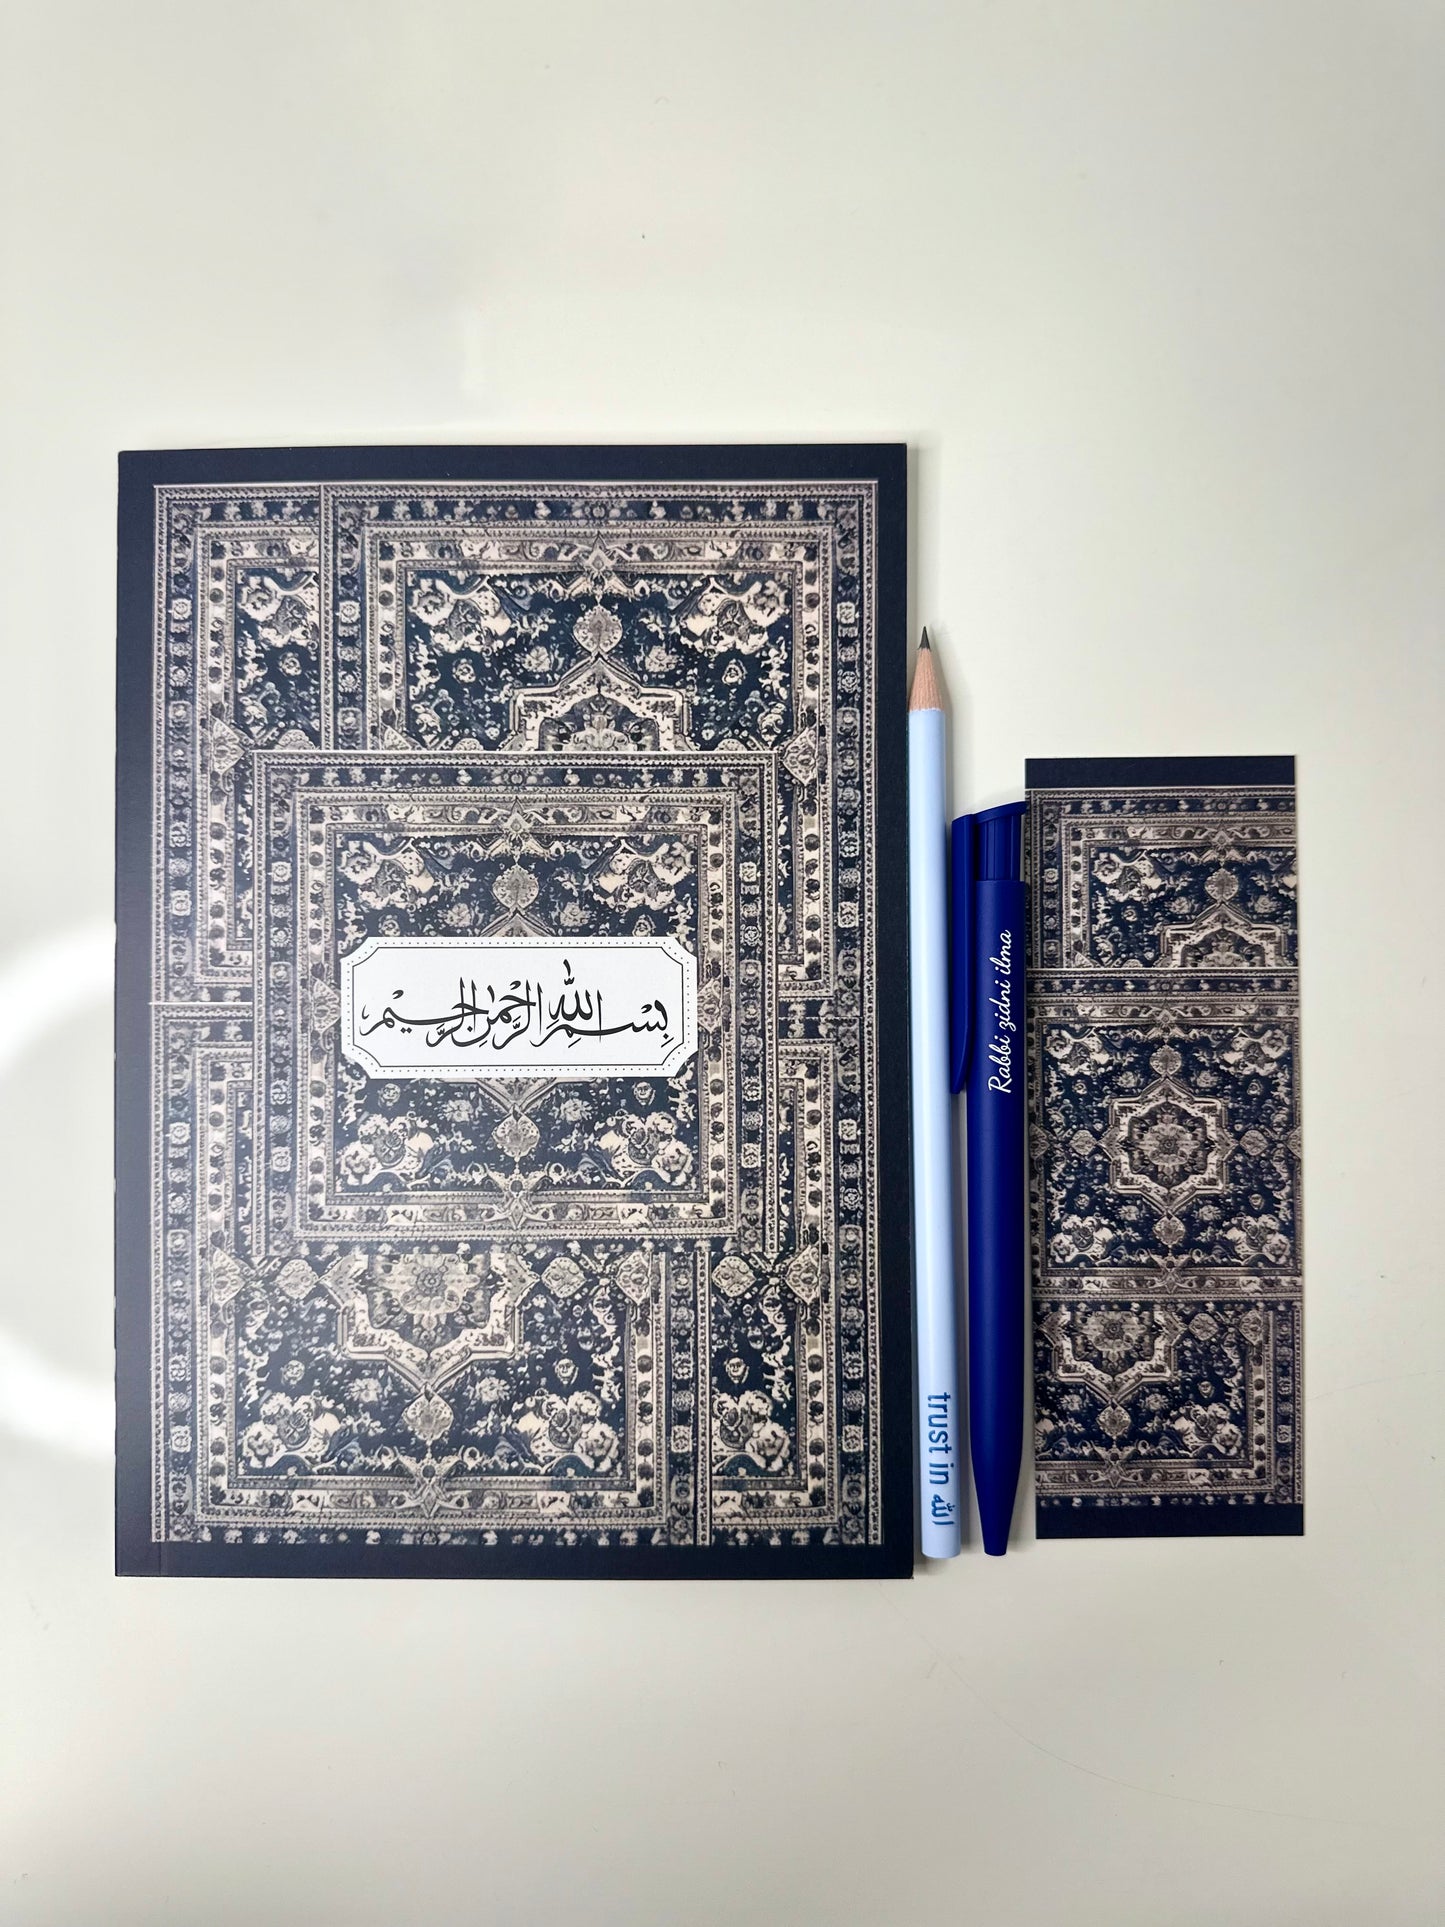 بِسْمِ اللهِ الرَّحْمٰنِ الرَّحِيْمِ
trust in الله
Rabbi zidni ilma